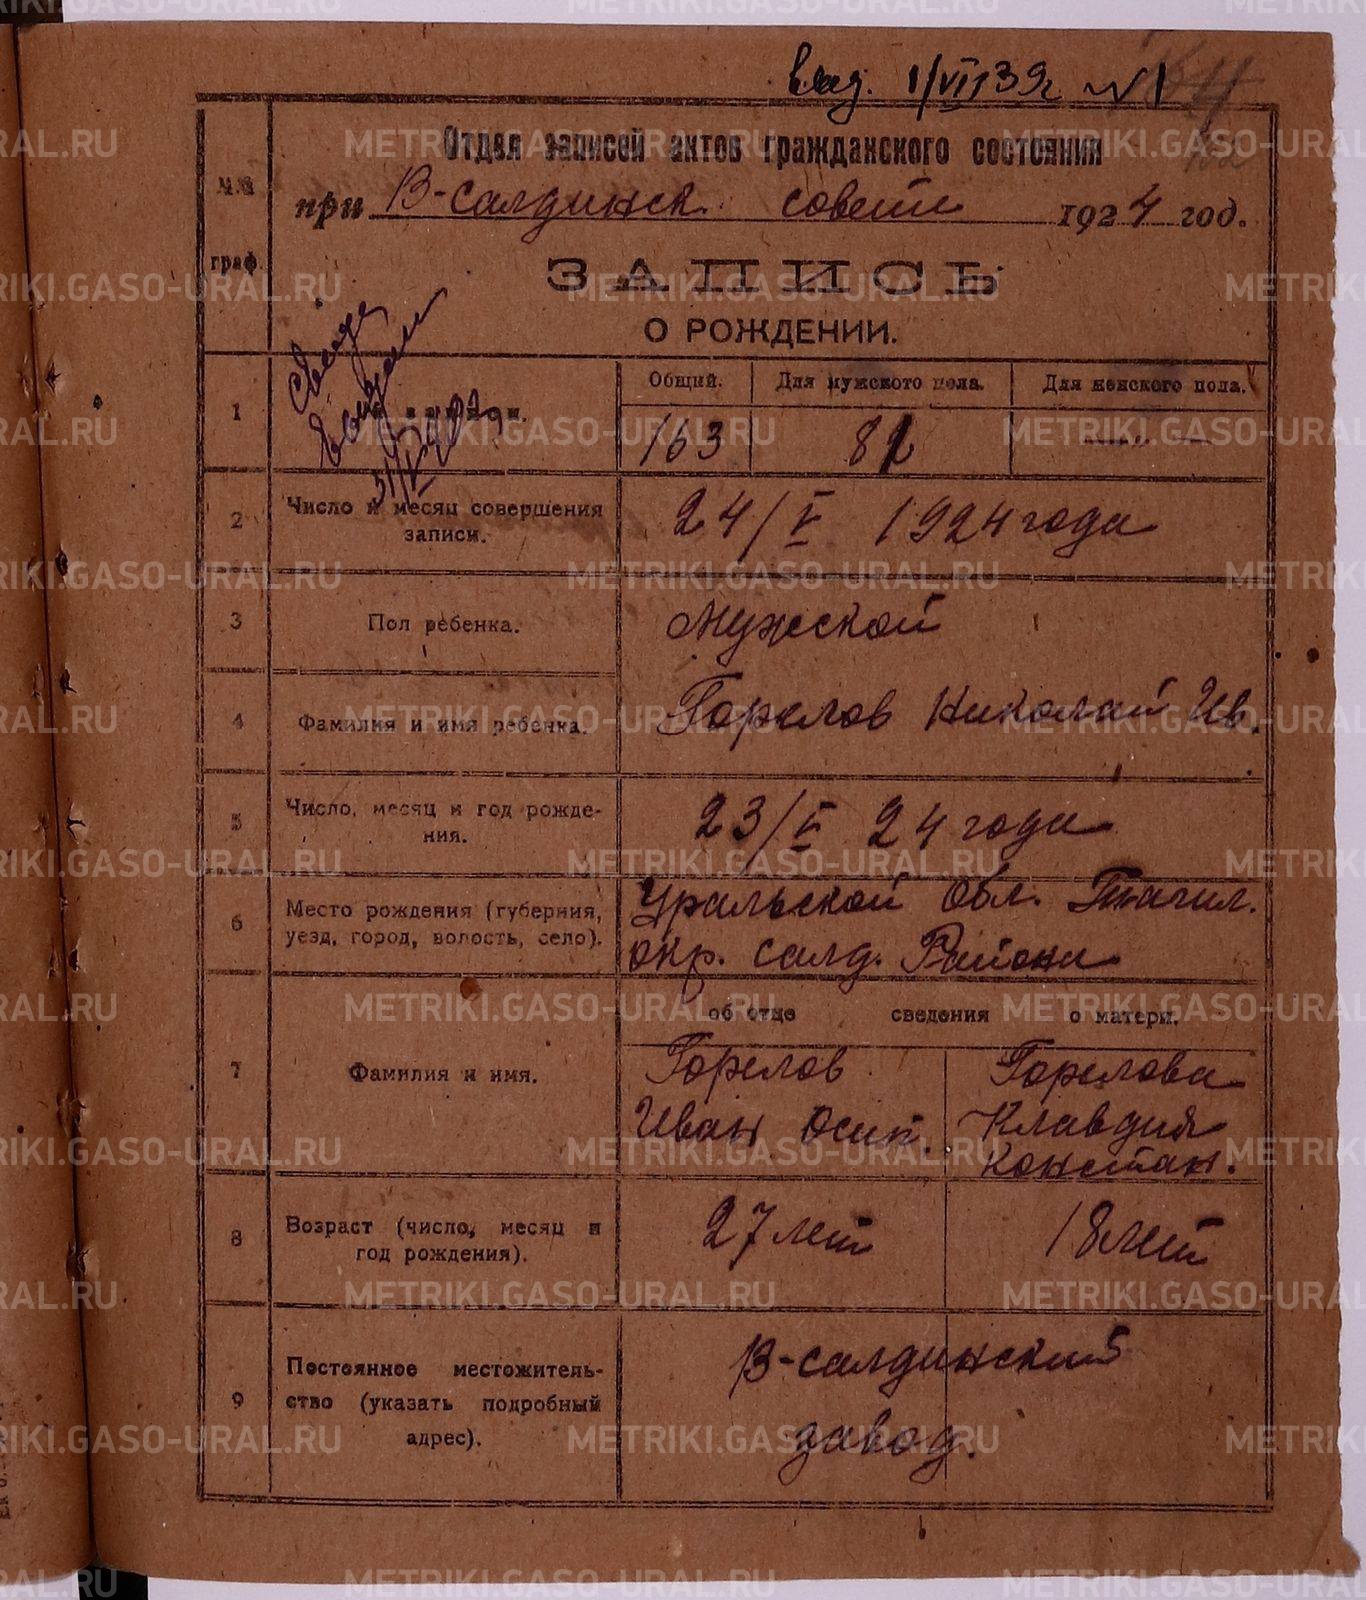 выд. 1/VII 39г №1
Отдел записей актов гражданского состояния
№№
при В-салдинск. совети 1924 год.
граф.
ЗАПИСЬ
О РОЖДЕНИИ.
Общий. Для мужского пола. Для женского пола.
1 № записи. 163 82 —"—
2 Число и месяц совершения 24/V 1924 года
записи.
3 Пол ребенка. Мужской
4 Фамилия и имя ребенка. Горелов Николай Ив.
5 Число, месяц и год рожде- 23/V 24 года
ния.
6 Место рождения (губерния, Уральской Обл. Тагил.
уезд, город, волость, село). окр. салд. Района
об отце сведения о матери.
7 Фамилия и имя. Горелов Горелова
Иван Осип. Клавдия
Констан.
8 Возраст (число, месяц и 27 лет 18 лет
год рождения).
9 Постоянное местожитель- В-салдинский
ство (указать подробный завод.
адрес).
METRIKI.GASO-URAL.RU